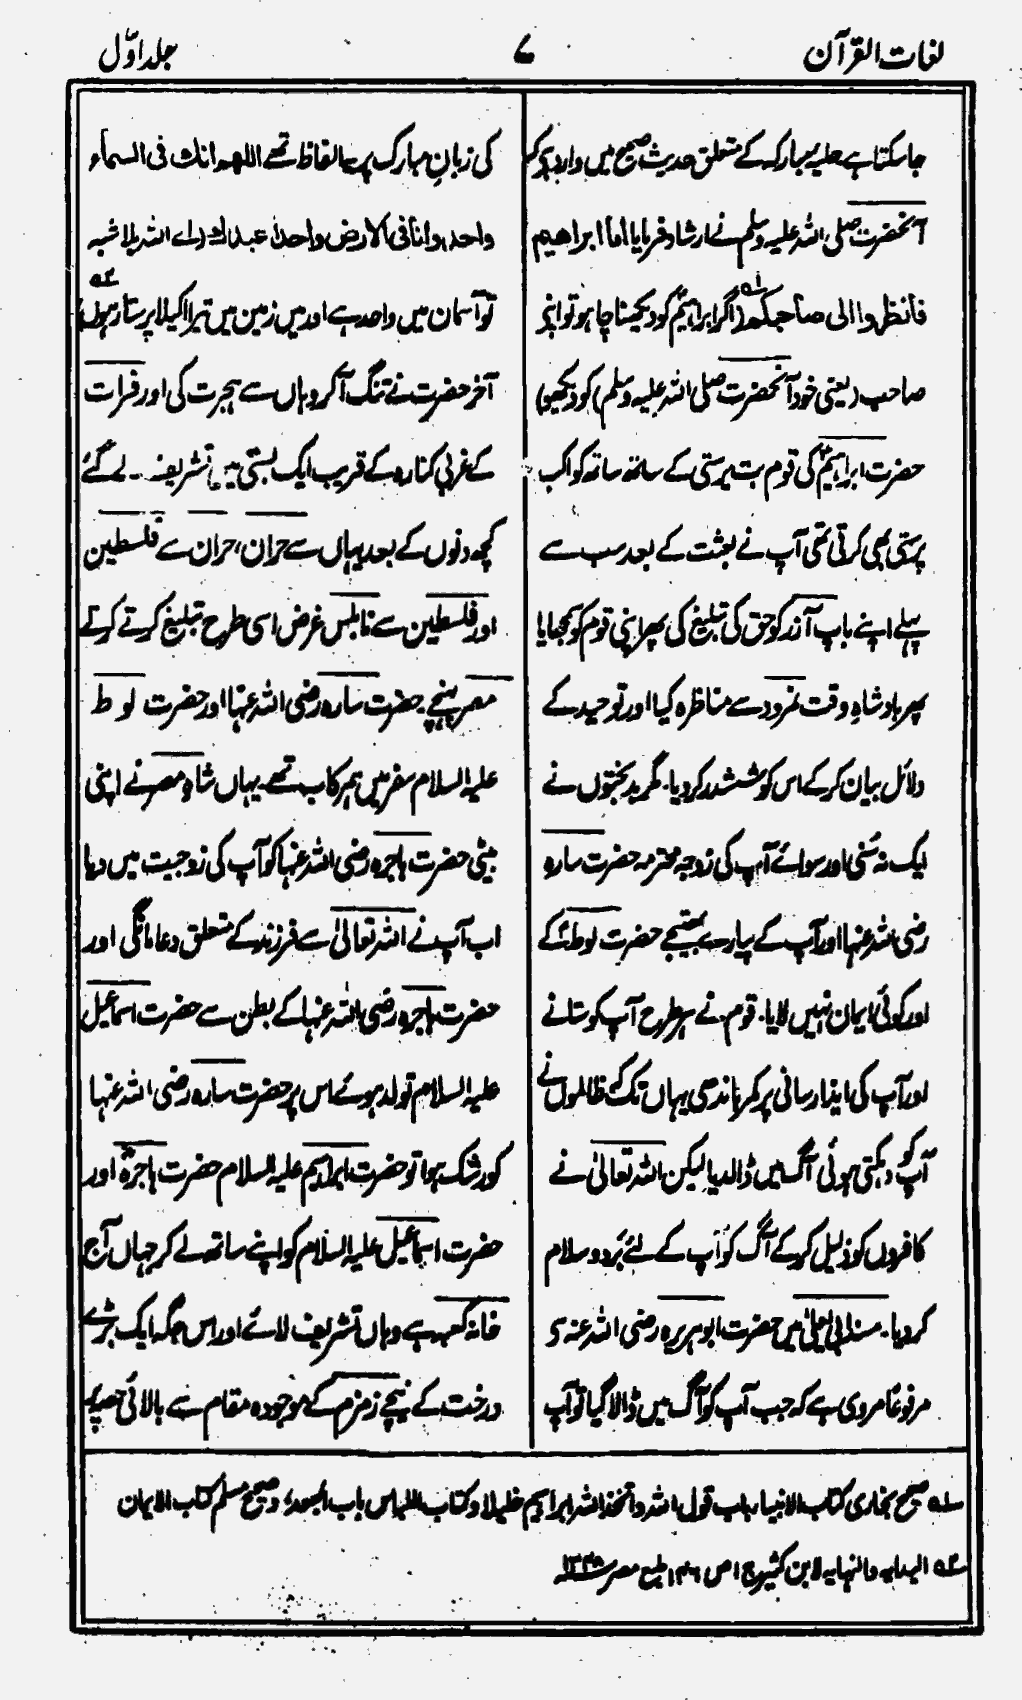 لغات القرآن
۷
جلد اوّل
جاسکتا ہے حلیہ مبارکہ کے متعلق حدیث صحیح میں وارد ہے کہ
آنحضرت صلی اللہ علیہ وسلم نے ارشاد فرمایا اما ابراھیم
فانظروا الی صاحبکم (اگر ابراہیمؑ کو دیکھنا چاہو تو اپنے
صاحب (یعنی خود آنحضرت صلی اللہ علیہ وسلم) کو دیکھو)
حضرت ابراہیمؑ کی قوم بت پرستی کے ساتھ ساتھ کواکب
پرستی بھی کرتی تھی آپ نے بعثت کے بعد سب سے
پہلے اپنے باپ آزر کو حق کی تبلیغ کی پھر اپنی قوم کو سمجھایا
پھر بادشاہِ وقت نمرود سے مناظرہ کیا اور توحید کے
دلائل بیان کرکے اس کو ششدر کر دیا۔ مگر بدبختوں نے
ایک نہ سُنی اور سوائے آپ کی زوجہ محترمہ حضرت سارہ
رضی اللہ عنہا اور آپ کے پیارے بھتیجے حضرت لوطؑ کے
اور کوئی ایمان نہیں لایا۔ قوم نے ہر طرح آپ کو ستانے
اور آپ کی ایذا رسانی پر کمر باندھی یہاں تک کہ ظالموں نے
آپ کو دہکتی ہوئی آگ میں ڈالدیا لیکن اللہ تعالیٰ نے
کافروں کو ذلیل کر کے آگ کو آپ کے لئے بَرد و سلام
کر دیا۔ مسند ابی یعلیٰ میں حضرت ابو ہریرہ رضی اللہ عنہ سے
مرفوعًا مروی ہے کہ جب آپ کو آگ میں ڈالا گیا تو آپ
کی زبانِ مبارک پر یہ الفاظ تھے اللھم انک فی السماء
واحد وانا فی الارض واحد اعبدک (اے اللہ بلا شبہ
تو آسمان میں واحد ہے اور میں زمین میں تیرا اکیلا پرستار ہوں)
آخر حضرت نے تنگ آکر وہاں سے ہجرت کی اور فرات
کے غربی کنارہ کے قریب ایک بستی میں تشریف لے گئے
کچھ دنوں کے بعد یہاں سے حران، حران سے فلسطین
اور فلسطین سے نابلس غرض اسی طرح تبلیغ کرتے کرتے
مصر پہنچے۔ حضرت سارہ رضی اللہ عنہا اور حضرت لوط
علیہ السلام سفر میں ہمرکاب تھے۔ یہاں شاہِ مصر نے اپنی
بیٹی حضرت ہاجرہ رضی اللہ عنہا کو آپ کی زوجیت میں دیا
اب آپ نے اللہ تعالیٰ سے فرزند کے متعلق دعا مانگی اور
حضرت ہاجرہ رضی اللہ عنہا کے بطن سے حضرت اسماعیل
علیہ السلام تولد ہوئے اس پر حضرت سارہ رضی اللہ عنہا
کو رشک ہوا تو حضرت ابراہیم علیہ السلام حضرت ہاجرہؓ اور
حضرت اسماعیل علیہ السلام کو اپنے ساتھ لے کر جہاں آج
خانہ کعبہ ہے وہاں تشریف لائے اور اس جگہ ایک بڑے
درخت کے نیچے زمزم کے موجودہ مقام سے بالائی حصہ پر
۱ھ صحیح بخاری کتاب الانبیاء باب قول اللہ واتخذ اللہ ابراہیم خلیلا و کتاب اللباس باب الجعد، و صحیح مسلم کتاب الایمان
۲ھ البدایہ والنہایہ لابن کثیر ج ۱ ص ۱۴۶ طبع مصر ۱۳۴۸ھ